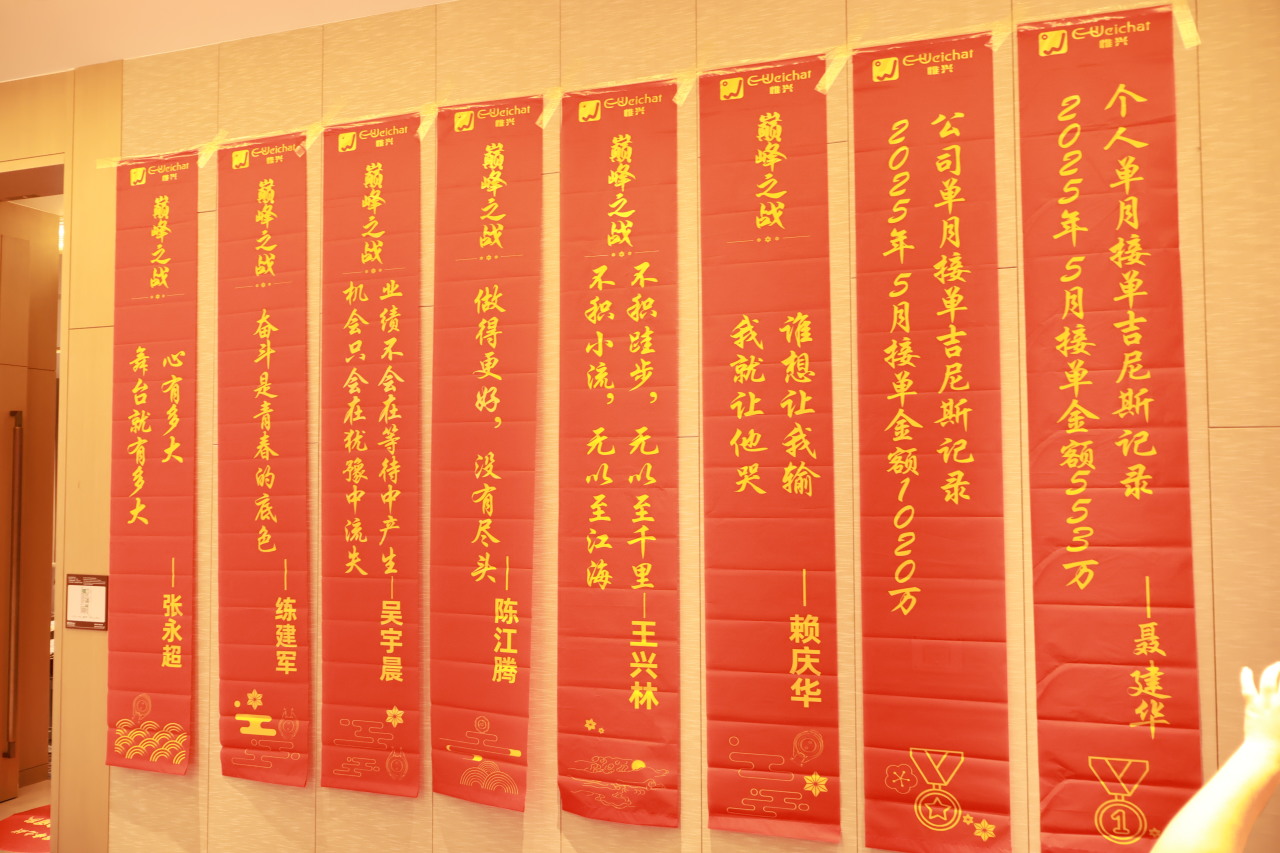 E-Weichat
惟兴
巅峰之战
心有多大
舞台就有多大
——张永超
E-Weichat
惟兴
巅峰之战
奋斗是青春的底色
——练建军
E-Weichat
惟兴
巅峰之战
业绩不会在等待中产生
机会只会在犹豫中流失
——吴宇晨
E-Weichat
惟兴
巅峰之战
做得更好，没有尽头
——陈江腾
E-Weichat
惟兴
巅峰之战
不积跬步，无以至千里
不积小流，无以至江海
——王兴林
E-Weichat
惟兴
巅峰之战
谁想让我输
我就让他哭
——赖庆华
E-Weichat
惟兴
公司单月接单吉尼斯记录
2025年5月接单金额1020万
E-Weichat
惟兴
个人单月接单吉尼斯记录
2025年5月接单金额553万
——聂建华
1